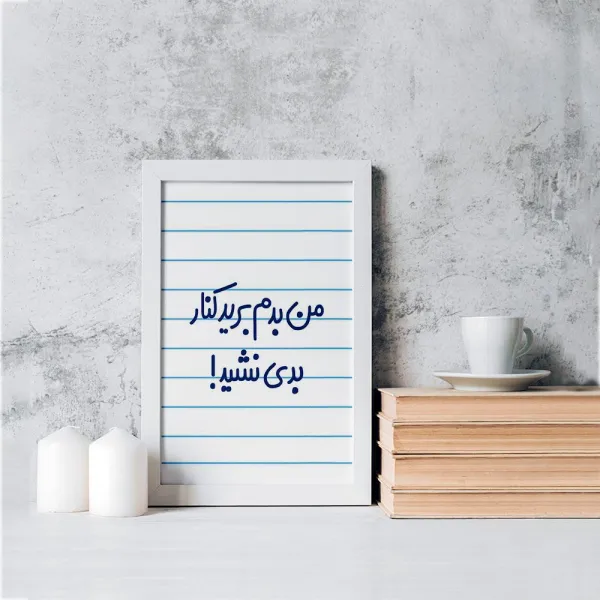 من بدم برید کنار
بدی نشید!